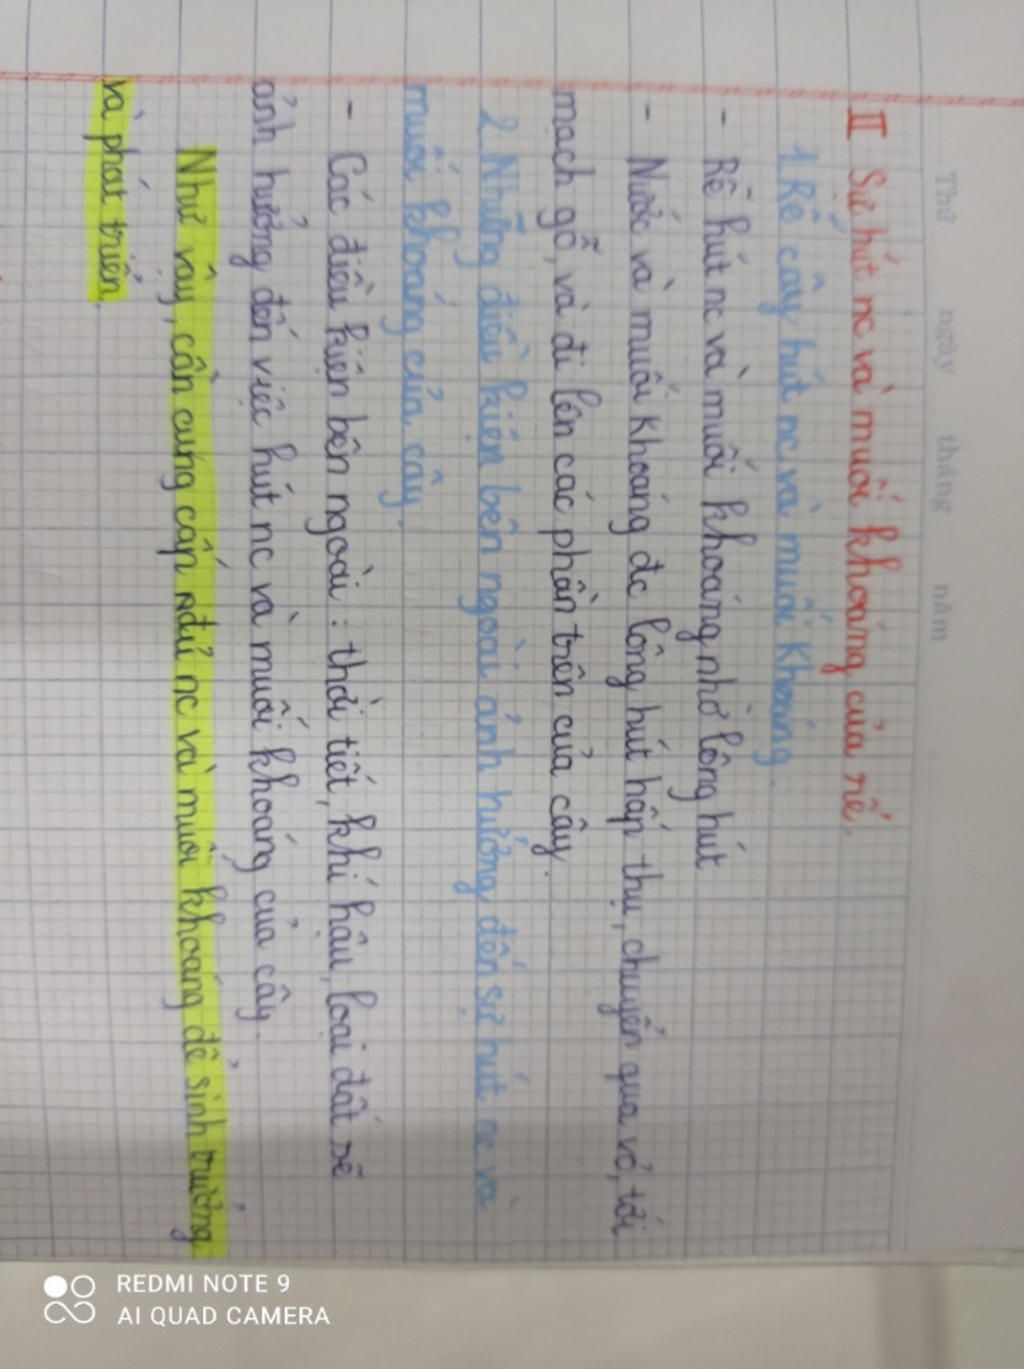 Thứ ngày tháng năm
II Sự hút nc và muối khoáng của rễ.
1. Rễ cây hút nc và muối khoáng.
- Rễ hút nc và muối khoáng nhờ lông hút
- Nước và muối khoáng đc lông hút hấp thụ, chuyển qua vỏ, tới
mạch gỗ, và đi lên các phần trên của cây.
2 Những điều kiện bên ngoài ảnh hưởng đến sự hút nc và
muối khoáng của cây.
- Các điều kiện bên ngoài : thời tiết, khí hậu, loại đất sẽ
ảnh hưởng đến việc hút nc và muối khoáng của cây.
Như vậy, cần cung cấp đủ nc và muối khoáng để sinh trưởng
và phát triển.
REDMI NOTE 9
AI QUAD CAMERA